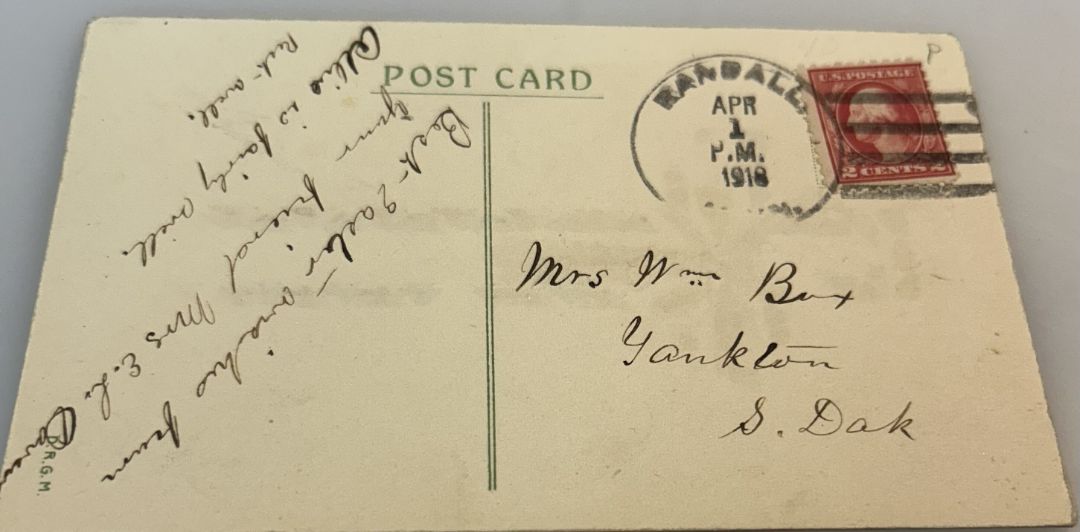 POST CARD
Best Easter wishes from
your friend
Mrs E. L.
Ollie is fairly well.
Rest well.
D.R.G.M.
RANDALL
APR
1
P.M.
1918
U.S. POSTAGE
2 CENTS 2
P
Mrs Wm Box
Yankton
S. Dak